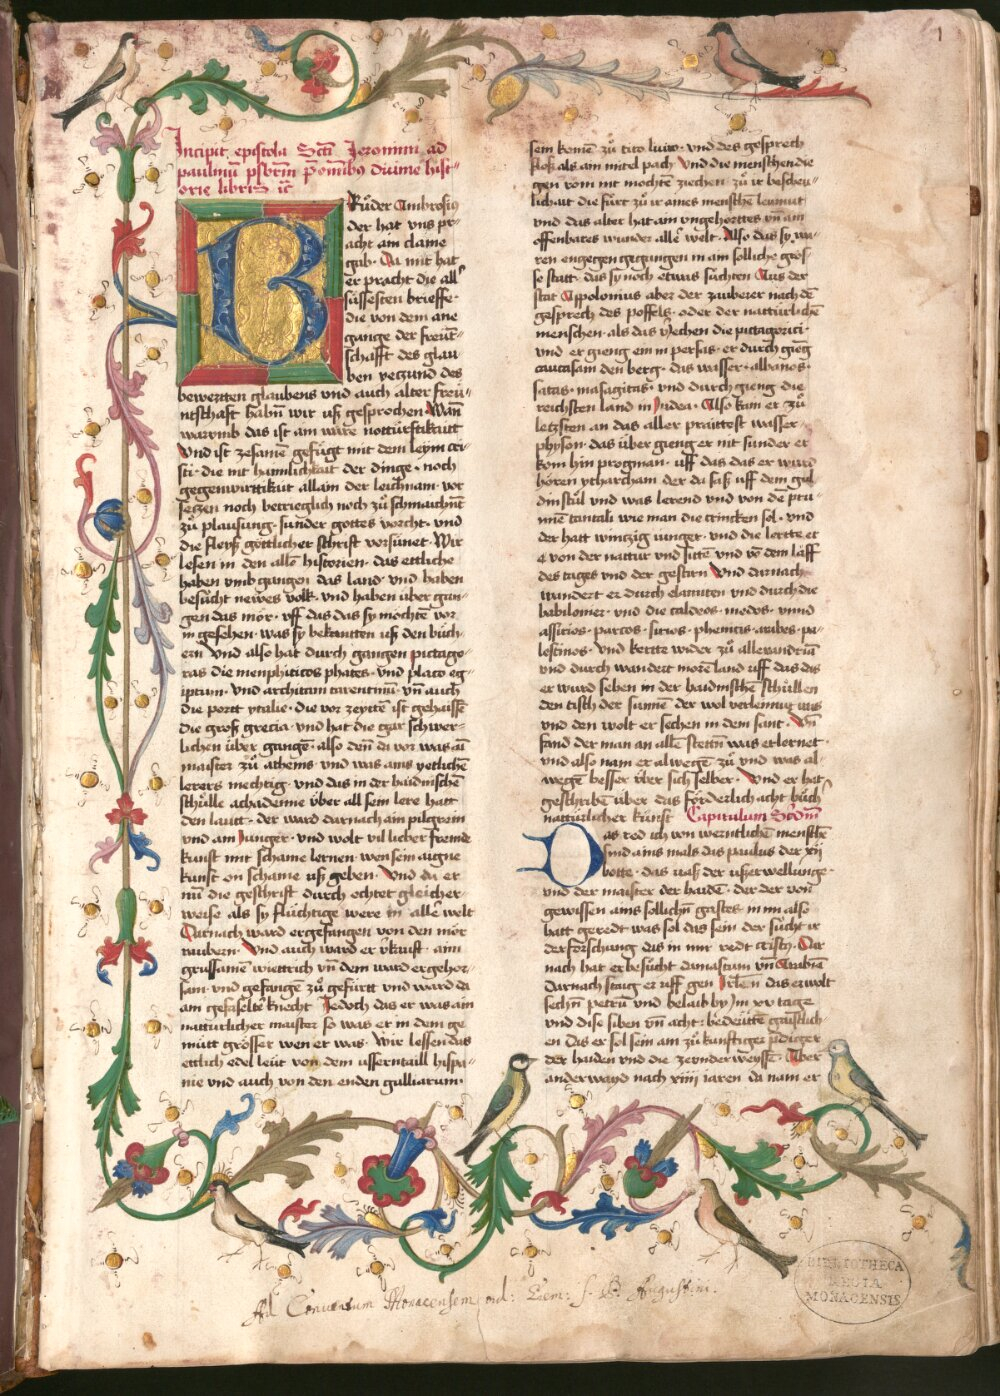 1
Incipit epistola Scti Jeronimi ad
paulinū psbrm̄ p̄ omībus diuine hist-
orie libris ic̄
BRůder Ambrosius
der hat vns pr-
acht am claine
gab. Da mit hat
er pracht die all
süssesten brieffe.
die von dem ane
gange der freūt-
schafft des glau
ben yetzund des
bewerten glaubens und auch alter freü-
ntschaft habn̄ wir uß gesprochen. Wan̄
warumb das ist am ware notturftikaitt
Vnd ist zesamē gefügt mit dem leym cri-
sti. die mit haimlichkait der dinge. noch
gegenwirttikait allain der leichnam. vor
setzen noch betrieglich noch zů schmaichnē
zů plausung. sunder gottes vorcht. vnd
die fleyß göttlicher schrift versünet. Wir
lesen in den altē historien. das ettliche
haben vmb gangen das land. vnd haben
besücht newes volk. vnd haben über gan-
gen das mör. vff das das sy möchtē vor
in gesehen. was sy bekantten uß den büch-
ern Vnd also hat durch gangen pictago-
ras die menphiticos phates. vnd plato eg-
iptum. vnd architam tarentinū. vn̄ auch
die portt ytalie. die vor zeyttē ist gehaissē
die groß grecia. vnd hat die gar schwer-
lichen über gangē. also den̄ da vor was ain
maister zů athenis. vnd was ains yetlichē
lerers mechtig. vnd das in der haidnischē
schülle achademie über all sein lere hatt
den lautt. der ward darnach ain pilgreim
vnd am Junger. vnd wolt vil lieber fremde
kunst mit schame lernen. wen sein aigne
kunst on schame uß geben. Vnd da er
nū die geschrift durch ochtet gleicher-
weise als sy flüchtige were in allē welt
Darnach ward er gefangen von den mör
raubern. Vnd auch ward er v̄kauft. aim
grussamē wüettrich vn̄ dem ward er gehor-
sam vnd gefangē zů gefürtt vnd ward da
am gefaseltē knecht Jedoch das er was ain
nattürlicher maister so was er in dem ge
mütt grösser wen er was. Wir lessen das
ettlich edel leüt von dem usserntaill hispa-
nie vnd auch von den enden galliarum.
sein komē zů tito liuio. vnd des gesprech
floß als am mitel pach Vnd die menschen die
gen rom nit mochtē ziechen zů ir beschew-
lichait die fürt zů ir ames menschē leümut
vnd das alter hat am vngehorttes vn̄ am
offenbares wunder allē welt. Also das sy wa-
ren engegen gegangen in am solliche gros-
se statt. das sy noch etwas süchten Aus der
stat Appolonius aber der zauberer nach dē
gesprech des poffels. oder der natturlichē
menschen. als das sprechen die pictagorici.
vnd er gieng ein in persas. er durch gieg
caucasam den berg. das wasser. albanos.
satas. masagitas. vnd durch gieng die
reichsten land in Indea. Also kam er zů
letzsten an das aller praittest wasser.
physon. das über gieng er nit sunder er
kom hin progman. uff das das er wurd
hören ytharcham der da saß uff dem gul
din stůl vnd was lerend vnd von dē pru-
nnē tantali wie man die trincken sol. vnd
der hatt wintzig iunger. vnd die lertte er
e von der nattur vnd sittē vnd vō dem läff
des tages vnd der gestirn Vnd darnach
wandert er durch elamiten vnd durch die
babilonier. vnd die caldeos. medos. vnnd
assirios. parcos. sirios. phenicis. arabes. pa-
lestinos. Vnd kertte wider zů allexandriā
vnd durch wandert morēland uff das das
er wurd sehen in der haidnischē schůllen
den tisch der sunnen der wol verleinug was
vnd den wolt er sechen in dem sant. Vn̄
fand der man an allē stettn̄ was er lernet.
vnd also nam er alwegē zů vnd was al
wegē besser über sich selber. Vnd er hat
geschribē über das förderlich acht büch
natturlicher kunst Capitulum Scdm̄
Das red ich von werntlichē menschē
sind ains mals das paulus der xij
botte. das vaß der ußerwellunge.
vnd der maister der haidē. der der von
gewissen ains sollichn̄ gastes in im also
hatt geredt was sol das sein der sücht ir
der forschung das in mir redt cristy. Dar
nach hat er besücht damascum vn̄ Arabiā
Darnach staig er uff gen Irlēn das er wolt
sechn̄ petrū vnd belaib by Im xv tage
vnd dise siben vn̄ acht. bedeüttē gaistlich-
en das er sol sein am zů kunftiger p̄diger
der haiden vnd die zernder weyssē. Aber
anderwayd nach xiiij iaren da nam er
Ad Conuentum Monacensem ord: Erem: S. B. Augustini.
BIBLIOTHECA
REGIA
MONACENSIS